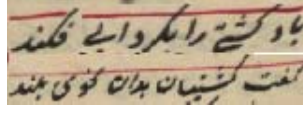 باد کشتی را بگردابی فکند
گفت کشتیبان بدان نحوی بلند